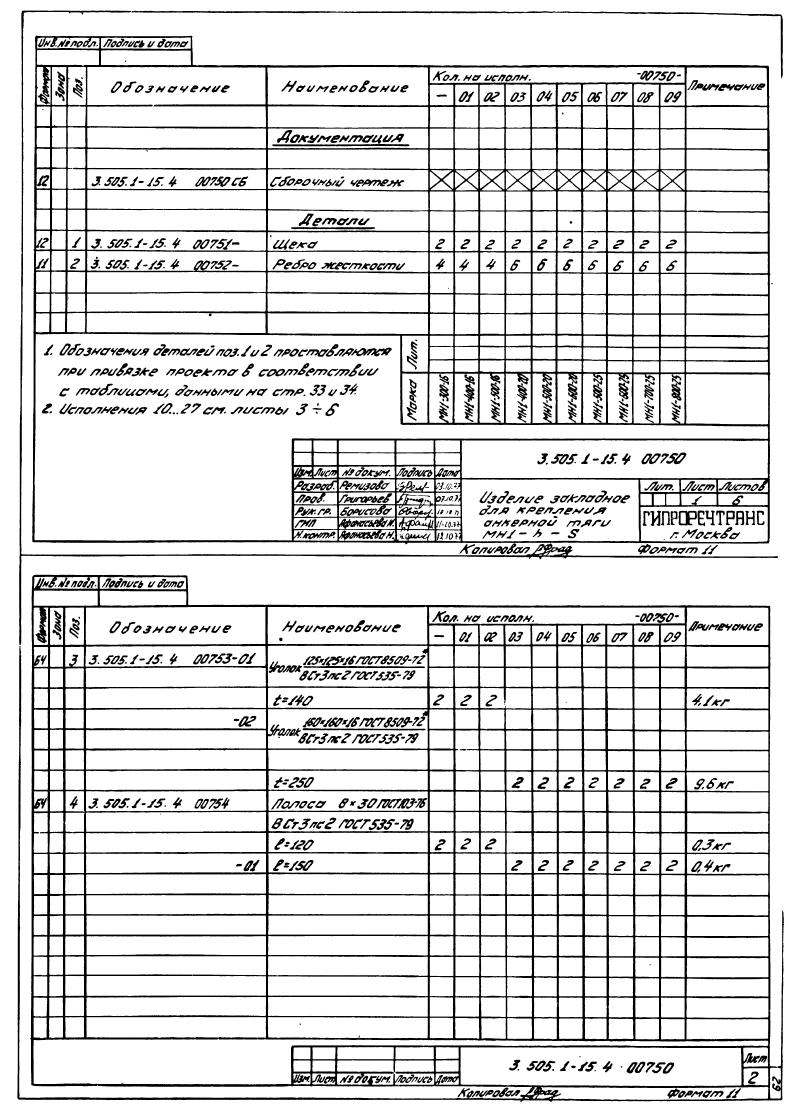 Инв.№ подл. Подпись и дата
Формат Зона Поз. Обозначение Наименование Кол. на исполн. -00750- Примечание
— 01 02 03 04 05 06 07 08 09
Документация
12 3.505.1-15.4 00750 СБ Сборочный чертеж
Детали
12 1 3.505.1-15.4 00751- Щека 2 2 2 2 2 2 2 2 2 2
11 2 3.505.1-15.4 00752- Ребро жесткости 4 4 4 6 6 6 6 6 6 6
1. Обозначения деталей поз.1 и 2 проставляются
при привязке проекта в соответствии
с таблицами, данными на стр. 33 и 34.
2. Исполнения 10...27 см. листы 3 ÷ 6
Лит.
Марка МН1-300-16 МН1-400-16 МН1-500-16 МН1-400-20 МН1-500-20 МН1-600-20 МН1-500-25 МН1-600-25 МН1-700-25 МН1-800-25
3.505.1-15.4 00750
Изм. Лист № докум. Подпись Дата
Разраб. Ремизова
Пров. Григорьев
Рук.гр. Борисова
ГИП Афанасьева Н.
Н.контр. Афанасьева Н.
Изделие закладное
для крепления
анкерной тяги
МН1-h-S
Лит. Лист Листов
1 6
ГИПРОРЕЧТРАНС
г. Москва
Копировал Формат 11
Инв.№ подл. Подпись и дата
Формат Зона Поз. Обозначение Наименование Кол. на исполн. -00750- Примечание
— 01 02 03 04 05 06 07 08 09
БЧ 3 3.505.1-15.4 00753-01 Уголок 125×125×16 ГОСТ 8509-72*
ВСт3пс2 ГОСТ 535-79
t=140 2 2 2 4,1 кг
-02 Уголок 160×160×16 ГОСТ 8509-72*
ВСт3пс2 ГОСТ 535-79
t=250 2 2 2 2 2 2 2 9,6 кг
БЧ 4 3.505.1-15.4 00754 Полоса 8×30 ГОСТ 103-76
ВСт3пс2 ГОСТ 535-79
ℓ=120 2 2 2 0,3 кг
-01 ℓ=150 2 2 2 2 2 2 2 0,4 кг
3.505.1-15.4 00750
Лист
2
Изм. Лист № докум. Подпись Дата
Копировал Формат 11
62